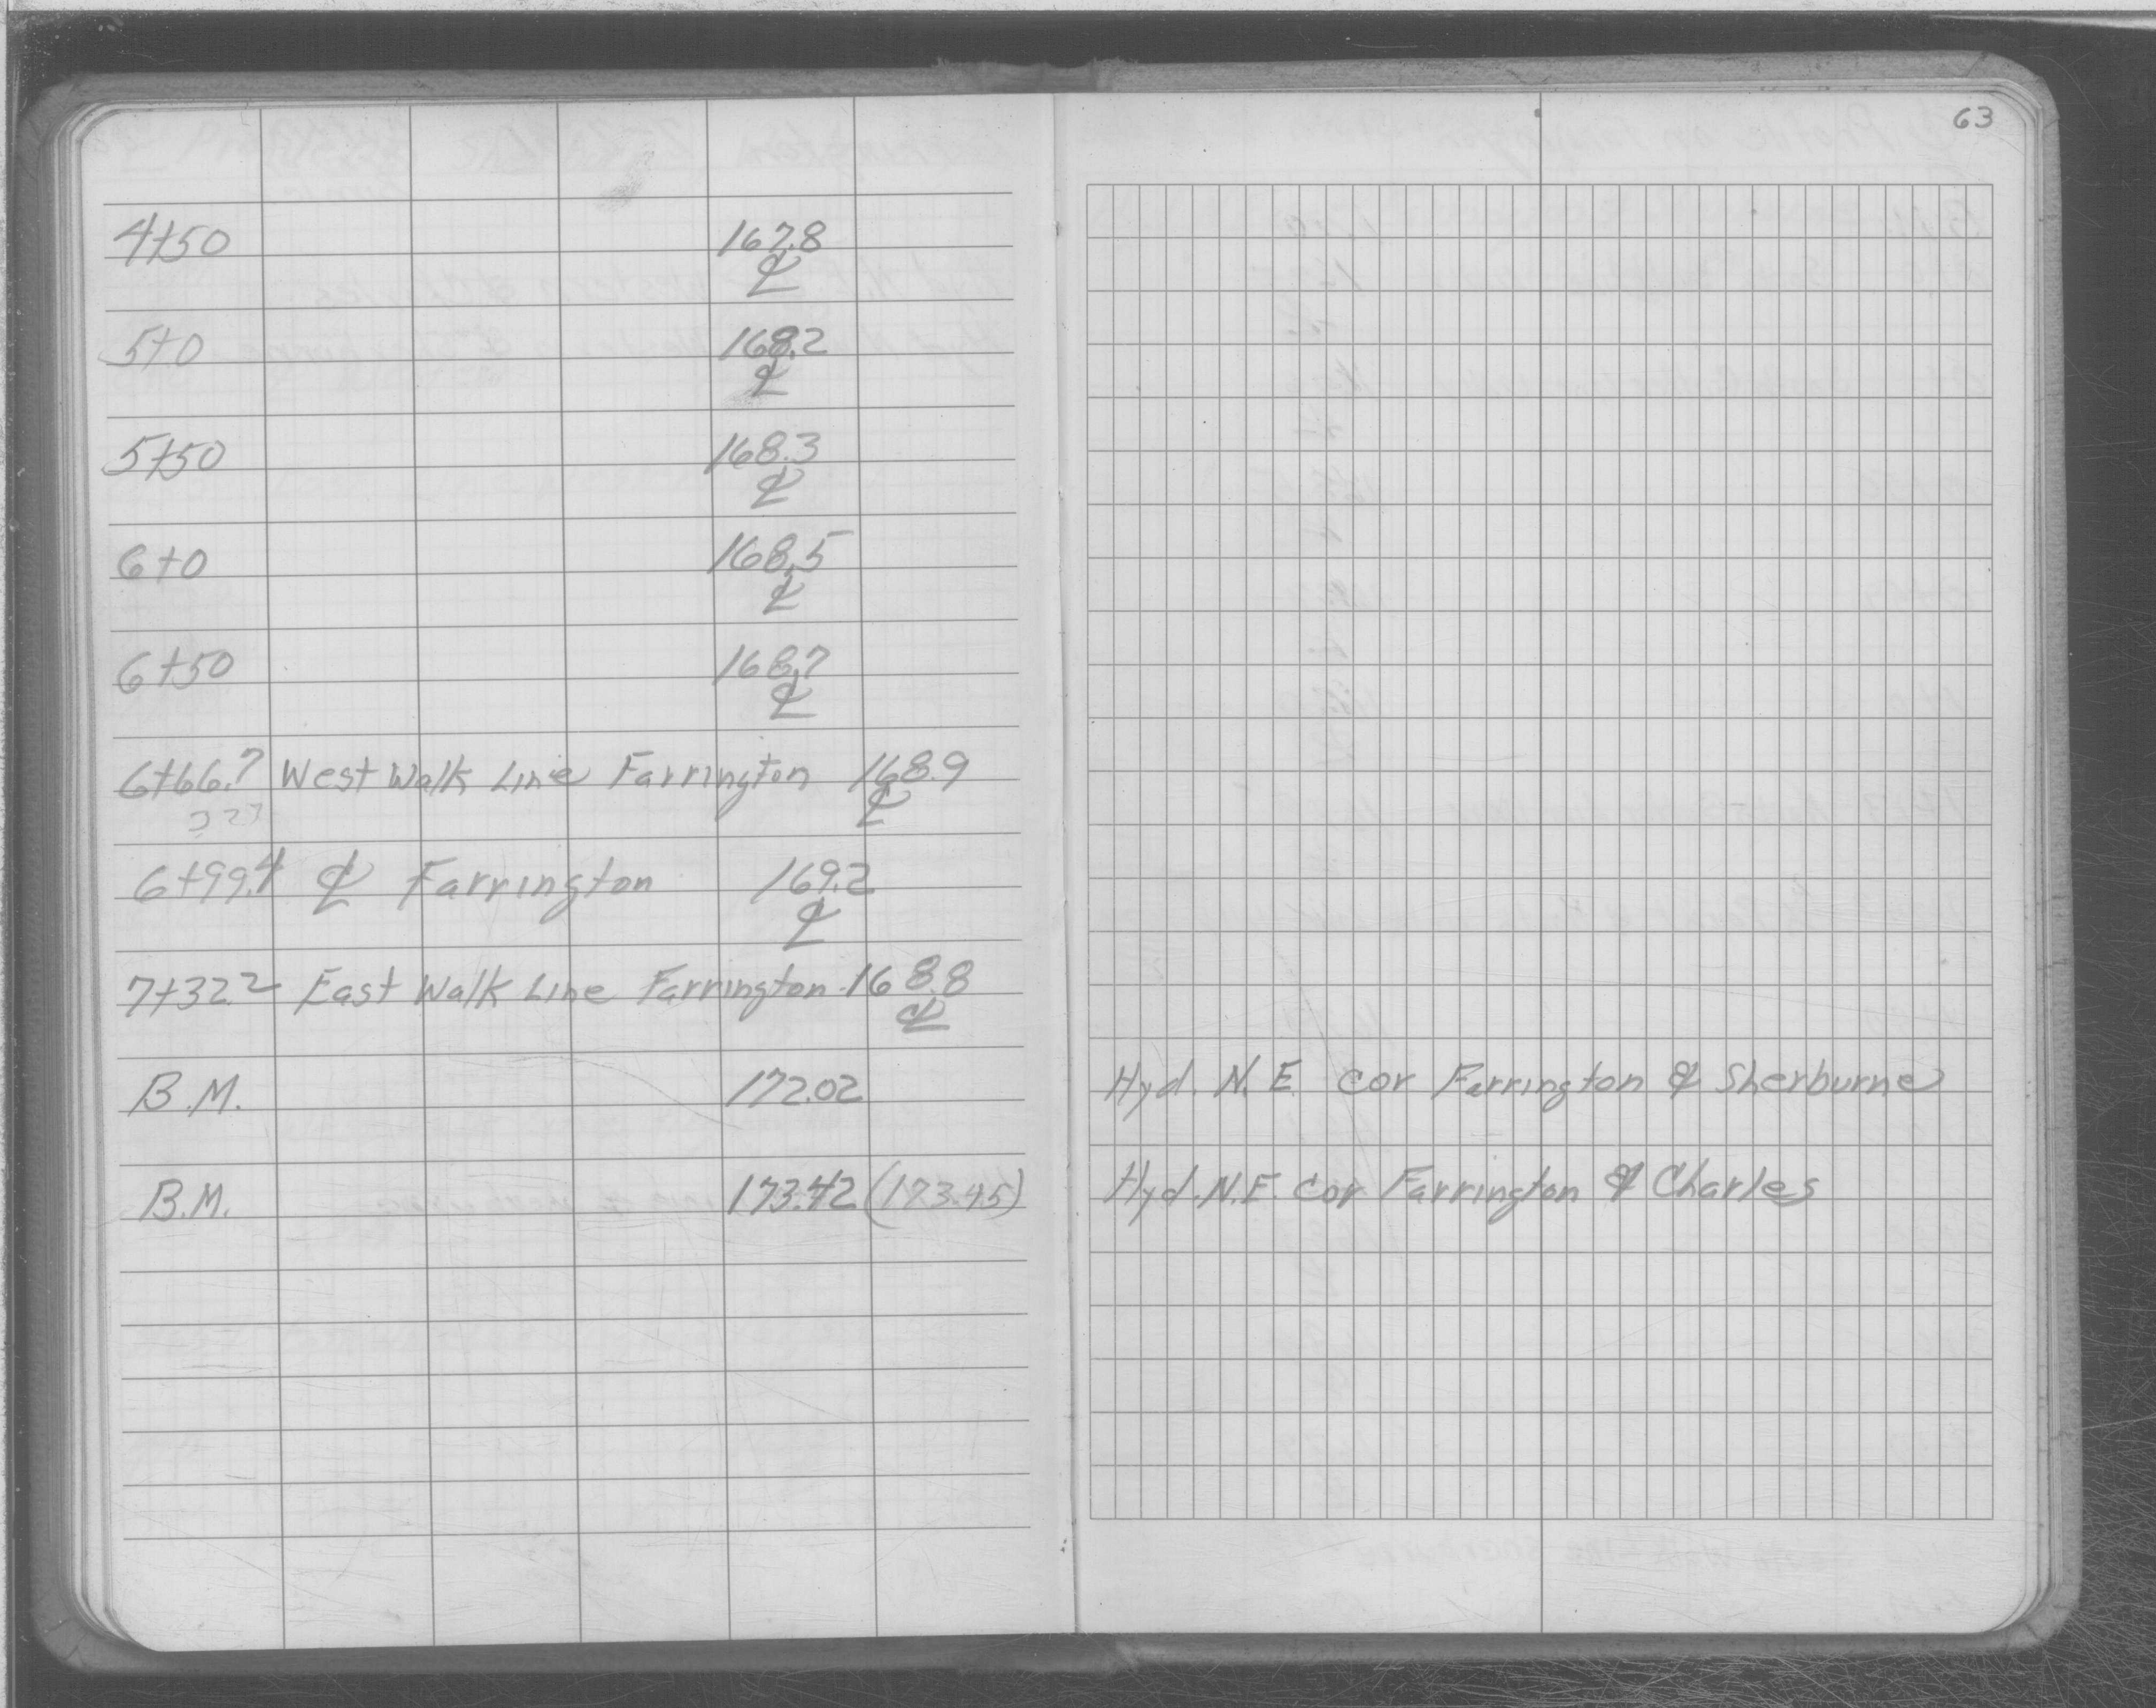 63
4+50 167.8
℄
5+0 168.2
℄
5+50 168.3
℄
6+0 168.5
℄
6+50 168.7
℄
6+66.7 West Walk Line Farrington 168.9
℄
6+99.4 ℄ Farrington 169.2
℄
7+32.2 East Walk Line Farrington 168.8
℄
B.M. 172.02 Hyd. N.E. cor Farrington & Sherburne
B.M. 173.42 (173.45) Hyd. N.E. cor Farrington & Charles